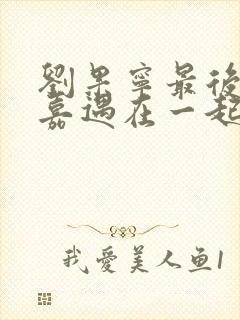 劉果寧最後
嘉遇在一起
我愛美人鱼1